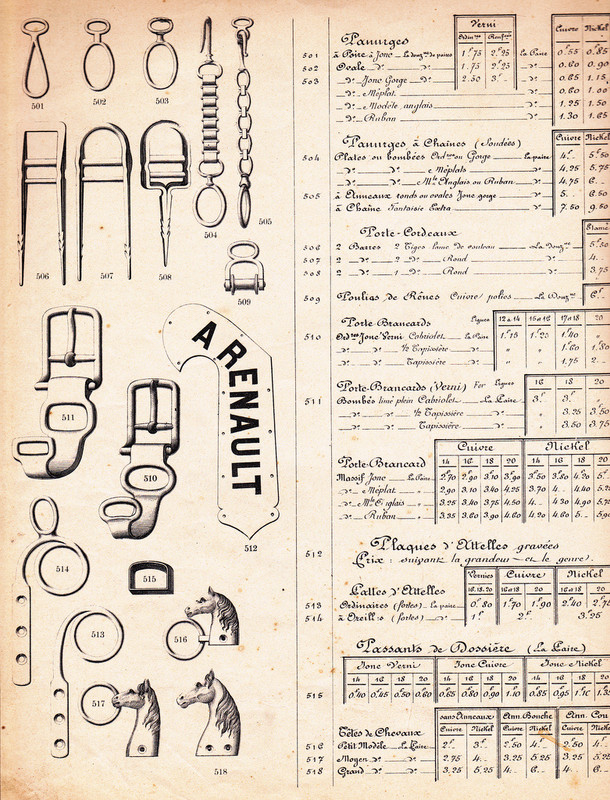 501
502
503
504
505
506
507
508
509
A RENAULT
511
510
512
514
515
513
516
517
518
Vernis
Cuivre Nickel
Panurges
501 à Poire à Jonc La douz.ne de paires 1.75 2.25 La Paire 0.55 0.85
502 Ovale d.o d.o 1.75 2.25 d.o 0.60 0.90
503 d.o Jonc Gorge d.o 2.50 3." d.o 0.65 1.15
d.o Méplat d.o 0.60 1.00
d.o Modèle anglais d.o 1.25 1.50
d.o Ruban d.o 1.30 1.65
Panurges à Chaînes (Soudées) Cuivre Nickel
504 Plates ou bombées Ord.res ou Gorge La paire 4." 5.50
d.o d.o d.o Méplats d.o 4.25 5.75
d.o d.o d.o M.le Anglais ou Ruban d.o 4.75 6."
505 à Anneaux ronds ou ovales Jonc gorge d.o 5." 6.50
à Chaîne Fantaisie Extra d.o 7.50 9.50
Porte-Cordeaux Etamé
506 2 Barres 2 Tiges lame de couteau La douz.ne
507 2 d.o 2 d.o Rond d.o 4."
508 2 d.o 1 d.o Rond d.o 3.75
509 Poulies de Rênes Cuivre polies La Douz.ne 6."
Porte-Brancards Lignes 12 à 14 15 à 16 17 à 18 20
510 Ord.res Jonc Verni Cabriolet La Paire 1.15 1.25 1.40 "
d.o d.o ½ Tapissière d.o " " 1.60 1.80
d.o d.o Tapissière d.o " " 1.75 2."
Porte-Brancards (Verni) Fer Lignes 16 18 20
511 Bombés limé plein Cabriolet La Paire 3." 3." "
d.o d.o d.o ½ Tapissière d.o 3.25 3.50
d.o d.o Tapissière d.o 3.50 3.75
Cuivre Nickel
Porte-Brancard 14 16 18 20 14 16 18 20
Massif Jonc La Paire 2.70 2.90 3.10 3.90 3.50 3.80 4.20
d.o Méplat d.o 2.90 3.10 3.40 4.25 3.70 4." 4.40
d.o M.le Anglais d.o 3.25 3.40 3.75 4.50 4." 4.30 4.90
d.o Ruban d.o 3.35 3.60 3.90 4.60 4.20 4.60 5."
512 Plaques d'Attelles gravées
Prix: suivant la grandeur et le genre.
Vernies Cuivre Nickel
Lattes d'Attelles 16.18.20 16 à 18 20 16 à 18 20
513 Ordinaires (fortes) La paire 0.80 1.70 1.90 2.40
514 à Oreilles (fortes) d.o 1." 2." 3.25
Passants de Dossière (La Paire)
Jonc Verni Jonc Cuivre Jonc Nickel
14 16 18 20 14 16 18 20 14 16 18 20
515 0.40 0.45 0.50 0.60 0.65 0.80 0.90 1.10 0.85 0.95 1.10
sans Anneaux Ann. Bouche Ann. Cou
Têtes de Chevaux Cuivre Nickel Cuivre Nickel Cuivre Nickel
516 Petit Modèle La Paire 2." 3." 2.50 4." 2.50 4."
517 Moyen d.o d.o 2.75 4." 3.25 5.25 3.25
518 Grand d.o d.o 3.25 5.25 4." 6." 4." 6."